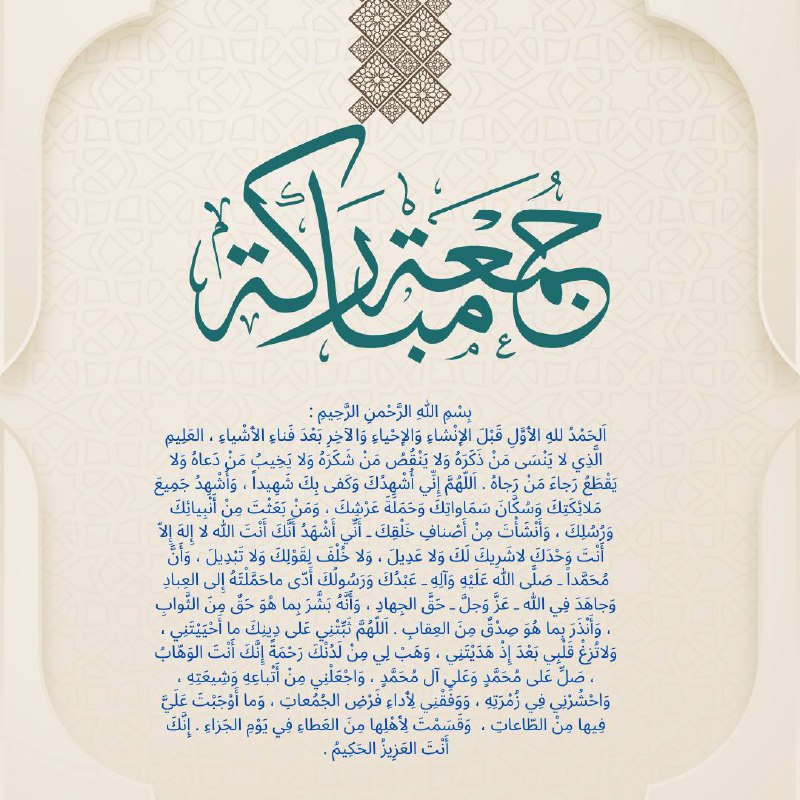 جُمُعَة مُبَارَكَة
بِسْمِ اللهِ الرَّحْمنِ الرَّحِيمِ :
اَلحَمْدُ للهِ الأوَّلِ قَبْلَ الإنْشاءِ وَالإحْياءِ وَالآخِرِ بَعْدَ فَناءِ الأشْياءِ ، العَلِيمِ
الَّذِي لا يَنْسَى مَنْ ذَكَرَهُ وَلا يَنْقُصُ مَنْ شَكَرَهُ وَلا يَخِيبُ مَنْ دَعاهُ وَلا
يَقْطَعُ رَجاءَ مَنْ رَجاهُ . اَللّهُمَّ إنِّي أُشْهِدُكَ وَكَفى بِكَ شَهِيداً ، وَأُشْهِدُ جَمِيعَ
مَلائِكَتِكَ وَسُكَّانَ سَمَاواتِكَ وَحَمَلَةَ عَرْشِكَ ، وَمَنْ بَعَثْتَ مِنْ أَنْبِيائِكَ
وَرُسُلِكَ ، وَأَنْشَأْتَ مِنْ أَصْنافِ خَلْقِكَ ـ أَنِّي أَشْهَدُ أَنَّكَ أَنْتَ الله لا إلهَ إلاّ
أَنْتَ وَحْدَكَ لاشَرِيكَ لَكَ وَلا عَدِيلَ ، وَلا خُلْفَ لِقَوْلِكَ وَلا تَبْدِيلَ ، وَأَنَّ
مُحَمَّداً ـ صَلَّى الله عَلَيْهِ وَآلِهِ ـ عَبْدُكَ وَرَسُولُكَ أَدّى ماحَمَّلْتَهُ إلى العِبادِ
وَجاهَدَ فِي الله ـ عَزَّ وَجلَّ ـ حَقَّ الجِهادِ ، وَأَنَّهُ بَشَّرَ بِما هُوَ حَقٌ مِنَ الثَّوابِ
، وَأَنْذَرَ بِما هُوَ صِدْقٌ مِنَ العِقابِ . اَللّهُمَّ ثَبِّتْنِي عَلى دِينِكَ ما أَحْيَيْتَنِي ،
وَلاتُزِغْ قَلْبِي بَعْدَ إذْ هَدَيْتَنِي ، وَهَبْ لِي مِنْ لَدُنْكَ رَحْمَةً إنَّكَ أَنْتَ الوَهّابُ
، صَلِّ عَلى مُحَمَّدٍ وَعَلى آل مُحَمَّدٍ ، وَاجْعَلْنِي مِنْ أَتْباعِهِ وَشِيعَتِهِ ،
وَاحْشُرْنِي فِي زُمْرَتِهِ ، وَوَفِّقْنِي لِأداءِ فَرْضِ الجُمُعاتِ ، وَما أَوْجَبْتَ عَلَيَّ
فِيها مِنْ الطّاعاتِ ، وَقَسَمْتَ لِأهْلِها مِنَ العَطاءِ فِي يَوْمِ الجَزاءِ . إنَّكَ
أَنْتَ العَزِيزُ الحَكِيمُ .